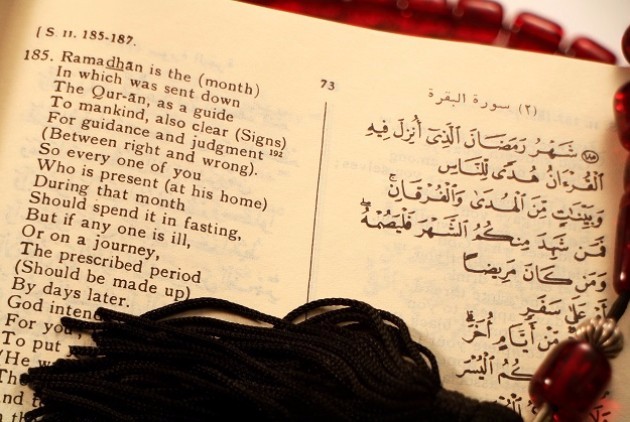 [ S. II. 185-187.
185. Ramadhān is the (month)
In which was sent down
The Qur-ān, as a guide
To mankind, also clear (Signs)
For guidance and judgment 192
(Between right and wrong).
So every one of you
Who is present (at his home)
During that month
Should spend it in fasting,
But if any one is ill,
Or on a journey,
The prescribed period
(Should be made up)
By days later.
God
For you
To put
(He
73
(٢) سورة البقرة
١٨٥ شَهْرُ رَمَضَانَ ٱلَّذِىٓ أُنزِلَ فِيهِ
ٱلْقُرْءَانُ هُدًى لِّلنَّاسِ
وَبَيِّنَٰتٍ مِّنَ ٱلْهُدَىٰ وَٱلْفُرْقَانِ ۚ
فَمَن شَهِدَ مِنكُمُ ٱلشَّهْرَ فَلْيَصُمْهُ ۖ
وَمَن كَانَ مَرِيضًا
أَوْ عَلَىٰ سَفَرٍ
مِّنْ أَيَّامٍ أُخَرَ ۗ
ٱلْيُسْرَ